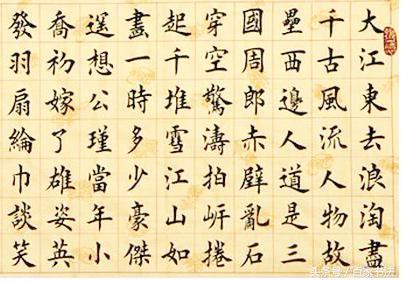 大江東去浪淘盡
千古風流人物故
壘西邊人道是三
國周郎赤壁亂石
穿空驚濤拍岍捲
起千堆雪江山如
畫一時多少豪傑
遥想公瑾當年小
喬初嫁了雄姿英
發羽扇綸巾談笑
头条号/百家书法